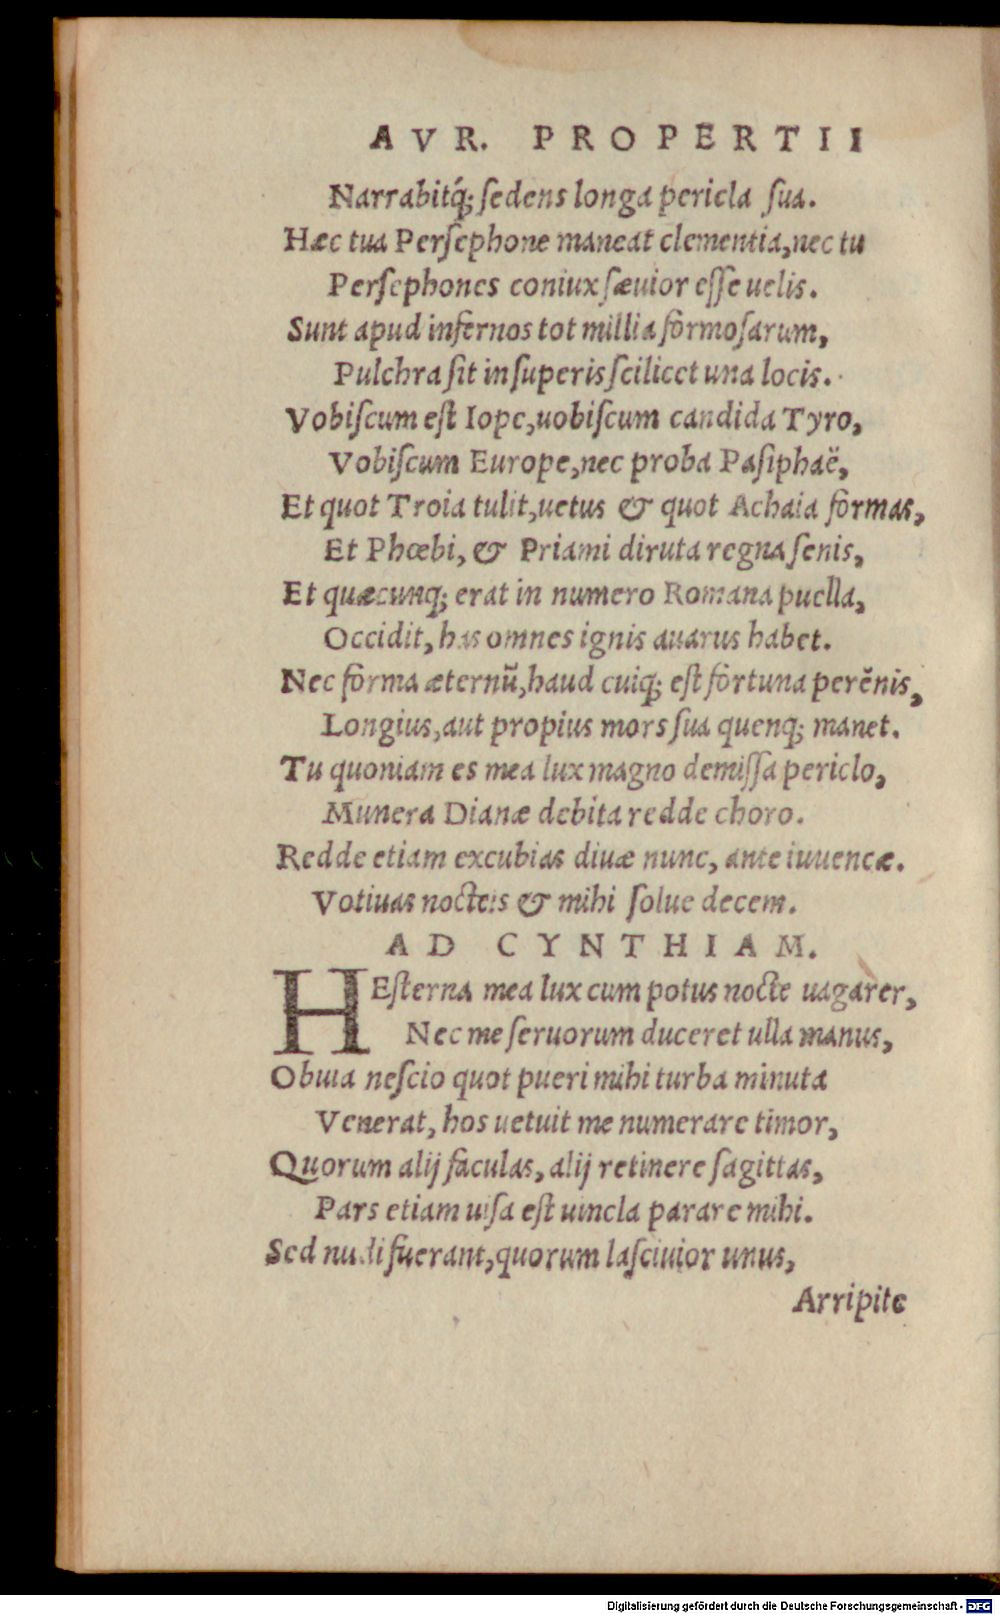 AVR. PROPERTII
Narrabitq́; ſedens longa pericla ſua.
Hæc tua Perſephone maneat clementia, nec tu
Perſephones coniux ſæuior eſſe uelis.
Sunt apud infernos tot millia formoſarum,
Pulchra ſit in ſuperis ſcilicet una locis.
Vobiſcum eſt Iope, uobiſcum candida Tyro,
Vobiſcum Europe, nec proba Paſiphaë,
Et quot Troia tulit, uetus & quot Achaia formas,
Et Phœbi, & Priami diruta regna ſenis,
Et quæcunq; erat in numero Romana puella,
Occidit, has omnes ignis auarus habet.
Nec forma æternũ, haud cuiq; eſt fortuna perẽnis,
Longius, aut propius mors ſua quenq; manet.
Tu quoniam es mea lux magno demiſſa periclo,
Munera Dianæ debita redde choro.
Redde etiam excubias diuæ nunc, ante iuuencæ.
Votiuas nocteis & mihi ſolue decem.
AD CYNTHIAM.
HEſterna mea lux cum potus nocte uagarer,
Nec me ſeruorum duceret ulla manus,
Obuia neſcio quot pueri mihi turba minuta
Venerat, hos uetuit me numerare timor,
Quorum alij faculas, alij retinere ſagittas,
Pars etiam uiſa eſt uincla parare mihi.
Sed nudi fuerant, quorum laſciuior unus,
Arripite
Digitalisierung gefördert durch die Deutsche Forschungsgemeinschaft - DFG